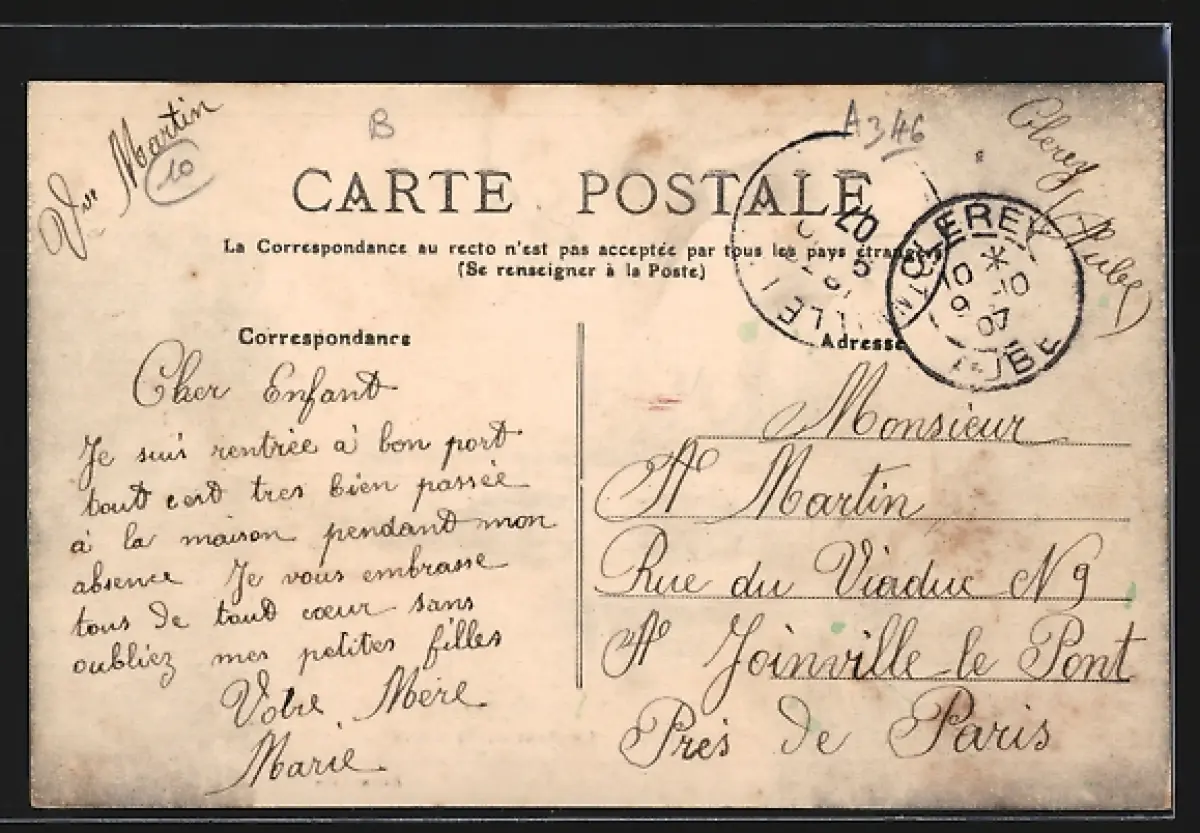 Vve Martin
10
B
A346
Clerey
(Aube)
CARTE POSTALE
La Correspondance au recto n'est pas acceptée par tous les pays étrangers
(Se renseigner à la Poste)
CLEREY
10 10
9 07
AUBE
07
5
Correspondance
Adresse
Cher Enfant
Je suis rentrée à bon port
tout cest tres bien passée
à la maison pendant mon
absence Je vous embrasse
tous de tout cœur sans
oubliez mes petites filles
Votre Mère
Marie
Monsieur
A Martin
Rue du Viaduc N 9
A Joinville-le Pont
Près de Paris